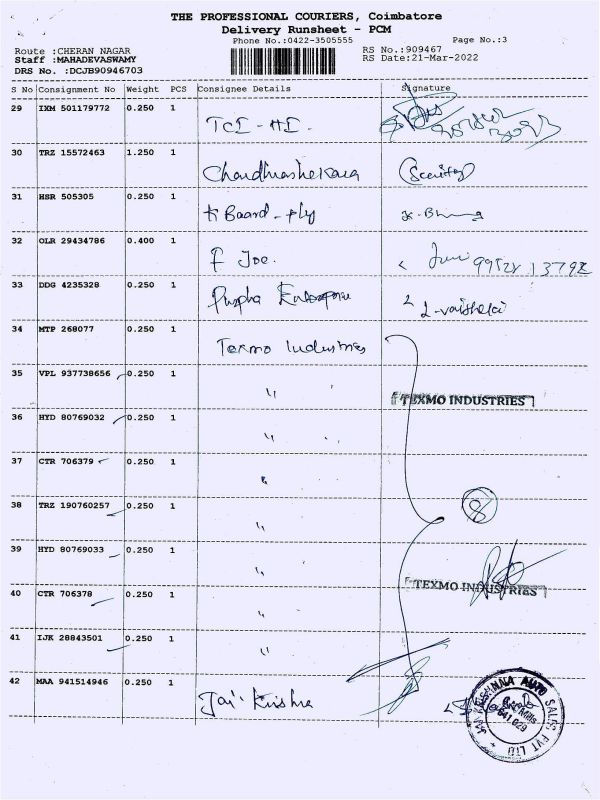 THE PROFESSIONAL COURIERS, Coimbatore
Delivery Runsheet - PCM
Phone No.:0422-3505555
Page No.:3
Route :CHERAN NAGAR
RS No.:909467
Staff :MAHADEVASWAMY
RS Date:21-Mar-2022
DRS No. :DCJB90946703
S No Consignment No Weight PCS Consignee Details Signature
29 IXM 501179772 0.250 1
TCI - HI.
30 TRZ 15572463 1.250 1
Chandhrashekara (Security)
31 HSR 505305 0.250 1
K Board - ply
32 OLR 29434786 0.400 1
F Joe.
33 DDG 4235328 0.250 1
Puspha Enterprise
34 MTP 268077 0.250 1
Texmo Industries
35 VPL 937738656 0.250 1
"
TEXMO INDUSTRIES
36 HYD 80769032 0.250 1
"
37 CTR 706379 0.250 1
"
38 TRZ 190760257 0.250 1
" 8
39 HYD 80769033 0.250 1
"
40 CTR 706378 0.250 1
"
TEXMO INDUSTRIES
41 IJK 28843501 0.250 1
"
42 MAA 941514946 0.250 1
Jai Krishna
JAI KRISHNAA AUTO SALES PVT LTD
641 029